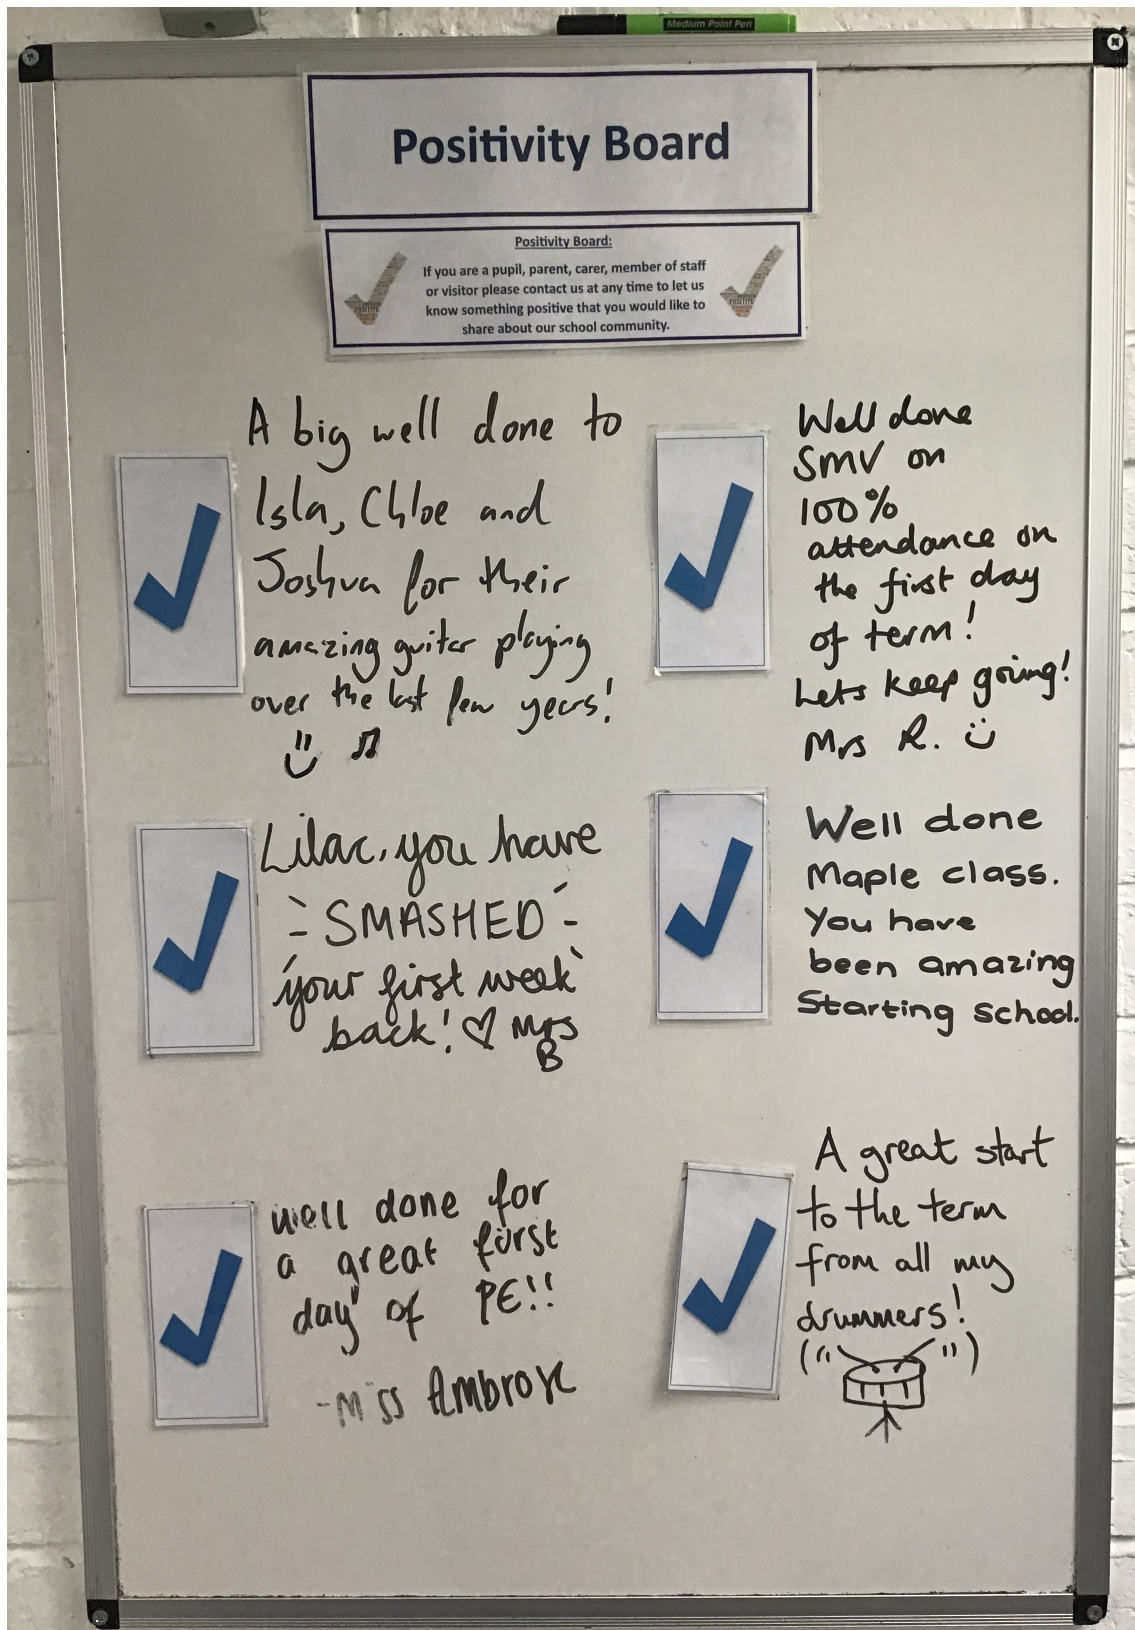 Medium Point Pen
Positivity Board
Positivity Board:
If you are a pupil, parent, carer, member of staff
or visitor please contact us at any time to let us
know something positive that you would like to
share about our school community.
A big well done to
Isla, Chloe and
Joshua for their
amazing guitar playing
over the last few years!
Well done
SMV on
100%
attendance on
the first day
of term!
Lets keep going!
Mrs R.
Lilac, you have
SMASHED
your first week
back! Mrs
B
Well done
Maple class.
You have
been amazing
Starting school.
well done for
a great first
day of PE!!
-Miss Ambrose
A great start
to the term
from all my
drummers!